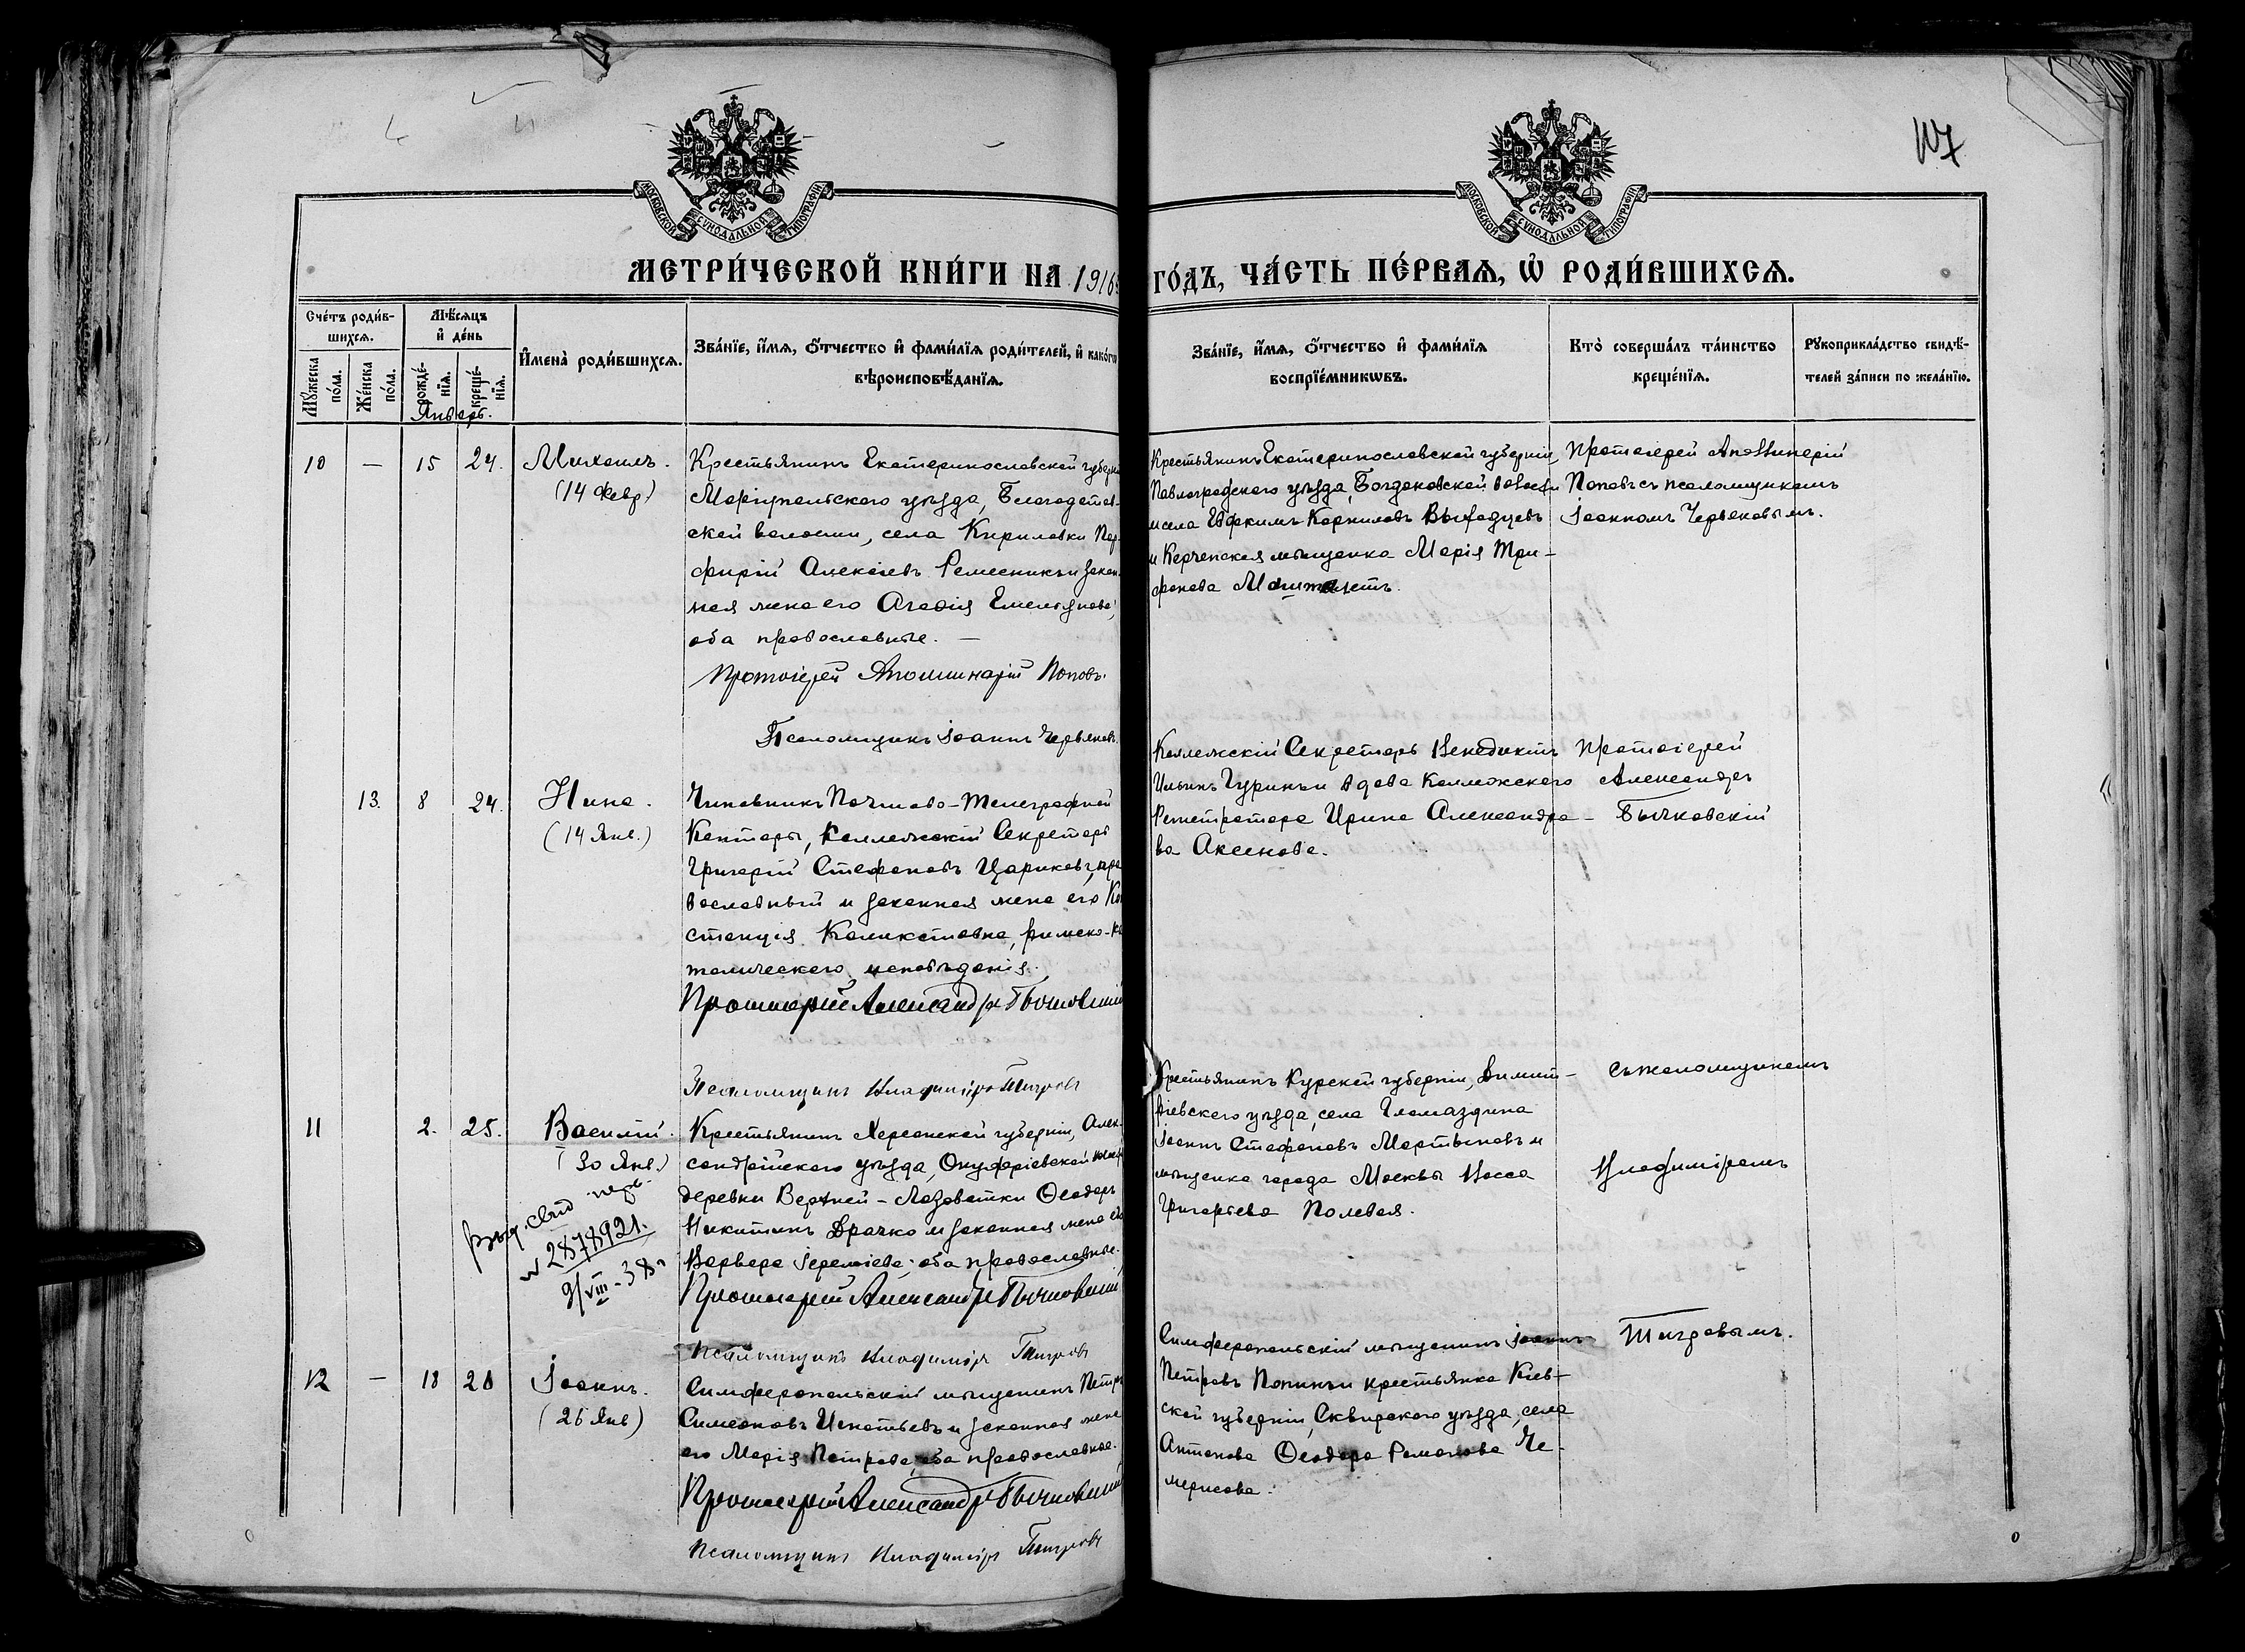 107
МОСКОВСКОЙ СУНОДАЛЬНОЙ ТИПОГРАФІИ
МОСКОВСКОЙ СУНОДАЛЬНОЙ ТИПОГРАФІИ
МЕТРИ́ЧЕСКОЙ КНИ́ГИ НА 1916 ГО́ДЪ, ЧА́СТЬ ПЕ́РВАѦ, Ѡ РОДИ́ВШИХСѦ.
Сче́тъ роди́в-
шихсѧ.
Мꙋ́жеска по́ла.
Же́нска по́ла.
Мѣ́сѧцъ
и҆ де́нь
рожде́-нїѧ.
креще́-нїѧ.
И҆мена̀ роди́вшихсѧ.
Зва́нїе, и҆́мѧ, ѻ҆́тчество и҆ фами́лїѧ роди́телей, и҆ како́гѡ
вѣроисповѣ́данїѧ.
Зва́нїе, и҆́мѧ, ѻ҆́тчество и҆ фами́лїѧ
воспрїе́мникѡвъ.
Кто̀ соверша́лъ та́инство
креще́нїѧ.
Рꙋкоприкла́дство свидѣ́-
телей за́писи по жела́нїю.
Январь.
10 — 15 24. Михаилъ.
(14 Февр.)
Крестьянинъ Екатеринославской губерніи
Маріупольскаго уѣзда, Благодатов-
ской волости, села Кириловки Пор-
фирій Алексіевъ Ремесникъ и закон-
ная жена его Агафія Емельянова,
оба православные. —
Протоіерей Аполлинарій Поповъ.
Псаломщикъ Іоаннъ Червяковъ.
Крестьянинъ Екатеринославской губерніи,
Павлоградскаго уѣзда, Богдановской волости
и села Евдокимъ Корниловъ Выходцевъ
и Керченская мѣщанка Марія Три-
фонова
Протоіерей Аполлинарій
Поповъ съ псаломщикомъ
Іоанномъ Червяковымъ.
13. 8 24. Нина.
(14 Янв.)
Чиновникъ Почтово-Телеграфной
Конторы, Коллежскій Секретарь
Григорій Стефановъ Цариковъ, пра
вославный и законная жена его Кон
станція Каликстовна, римско-ка
толическаго исповѣданія.
Протоіерей Александръ Бычковскій
Псаломщикъ Владиміръ Тигровъ
Коллежскій Секретарь Венедиктъ
Ильинъ Гуринъ и вдова Коллежскаго
Регистратора Ирина Александро-
ва Аксенова.
Протоіерей
Александръ
Бычковскій
11 2. 25. Василій.
(30 Янв.)
выд. свид. перв.
N 2878921.
9/VIII-38 г
Крестьянинъ Херсонской губерніи, Алек-
сандрійскаго уѣзда, Онуфріевской волости
деревни Верхней-Лозоватки Ѳеодоръ
Никитинъ Драчко и законная жена его
Варвара Іереміева; оба православные.
Протоіерей Александръ Бычковскій
Псаломщикъ Владиміръ Тигровъ
Крестьянинъ Курской губерніи, Димит-
ріевскаго уѣзда, села Гламаздина
Іоаннъ Стефановъ Мартыновъ и
мѣщанка города Москвы Васса
Григорьева Полевая.
съ псаломщикомъ
Владиміромъ
Тигровымъ.
12 — 18 28 Іоаннъ.
(26 Янв)
Симферопольскій мѣщанинъ Петръ
Симеоновъ Игнатьевъ и законная жена
его Марія Петрова, оба православные.
Протоіерей Александръ Бычковскій
Псаломщикъ Владиміръ Тигровъ
Симферопольскій мѣщанинъ Іоаннъ
Петровъ Попинъ и крестьянка Кіев-
ской губерніи, Сквирскаго уѣзда, села
Антонова Ѳеодора Романова Че-
мерисова.